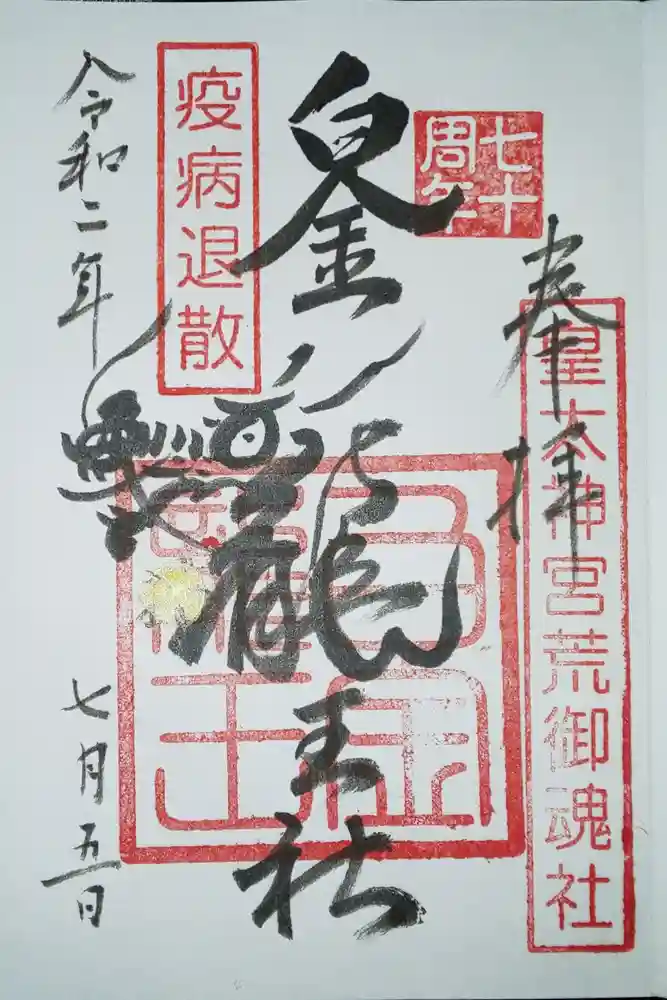 奉拝
皇太神宮荒御魂社
七十
周年
白金龍王社
白金
龍王
疫病退散
令和二年
七月五日